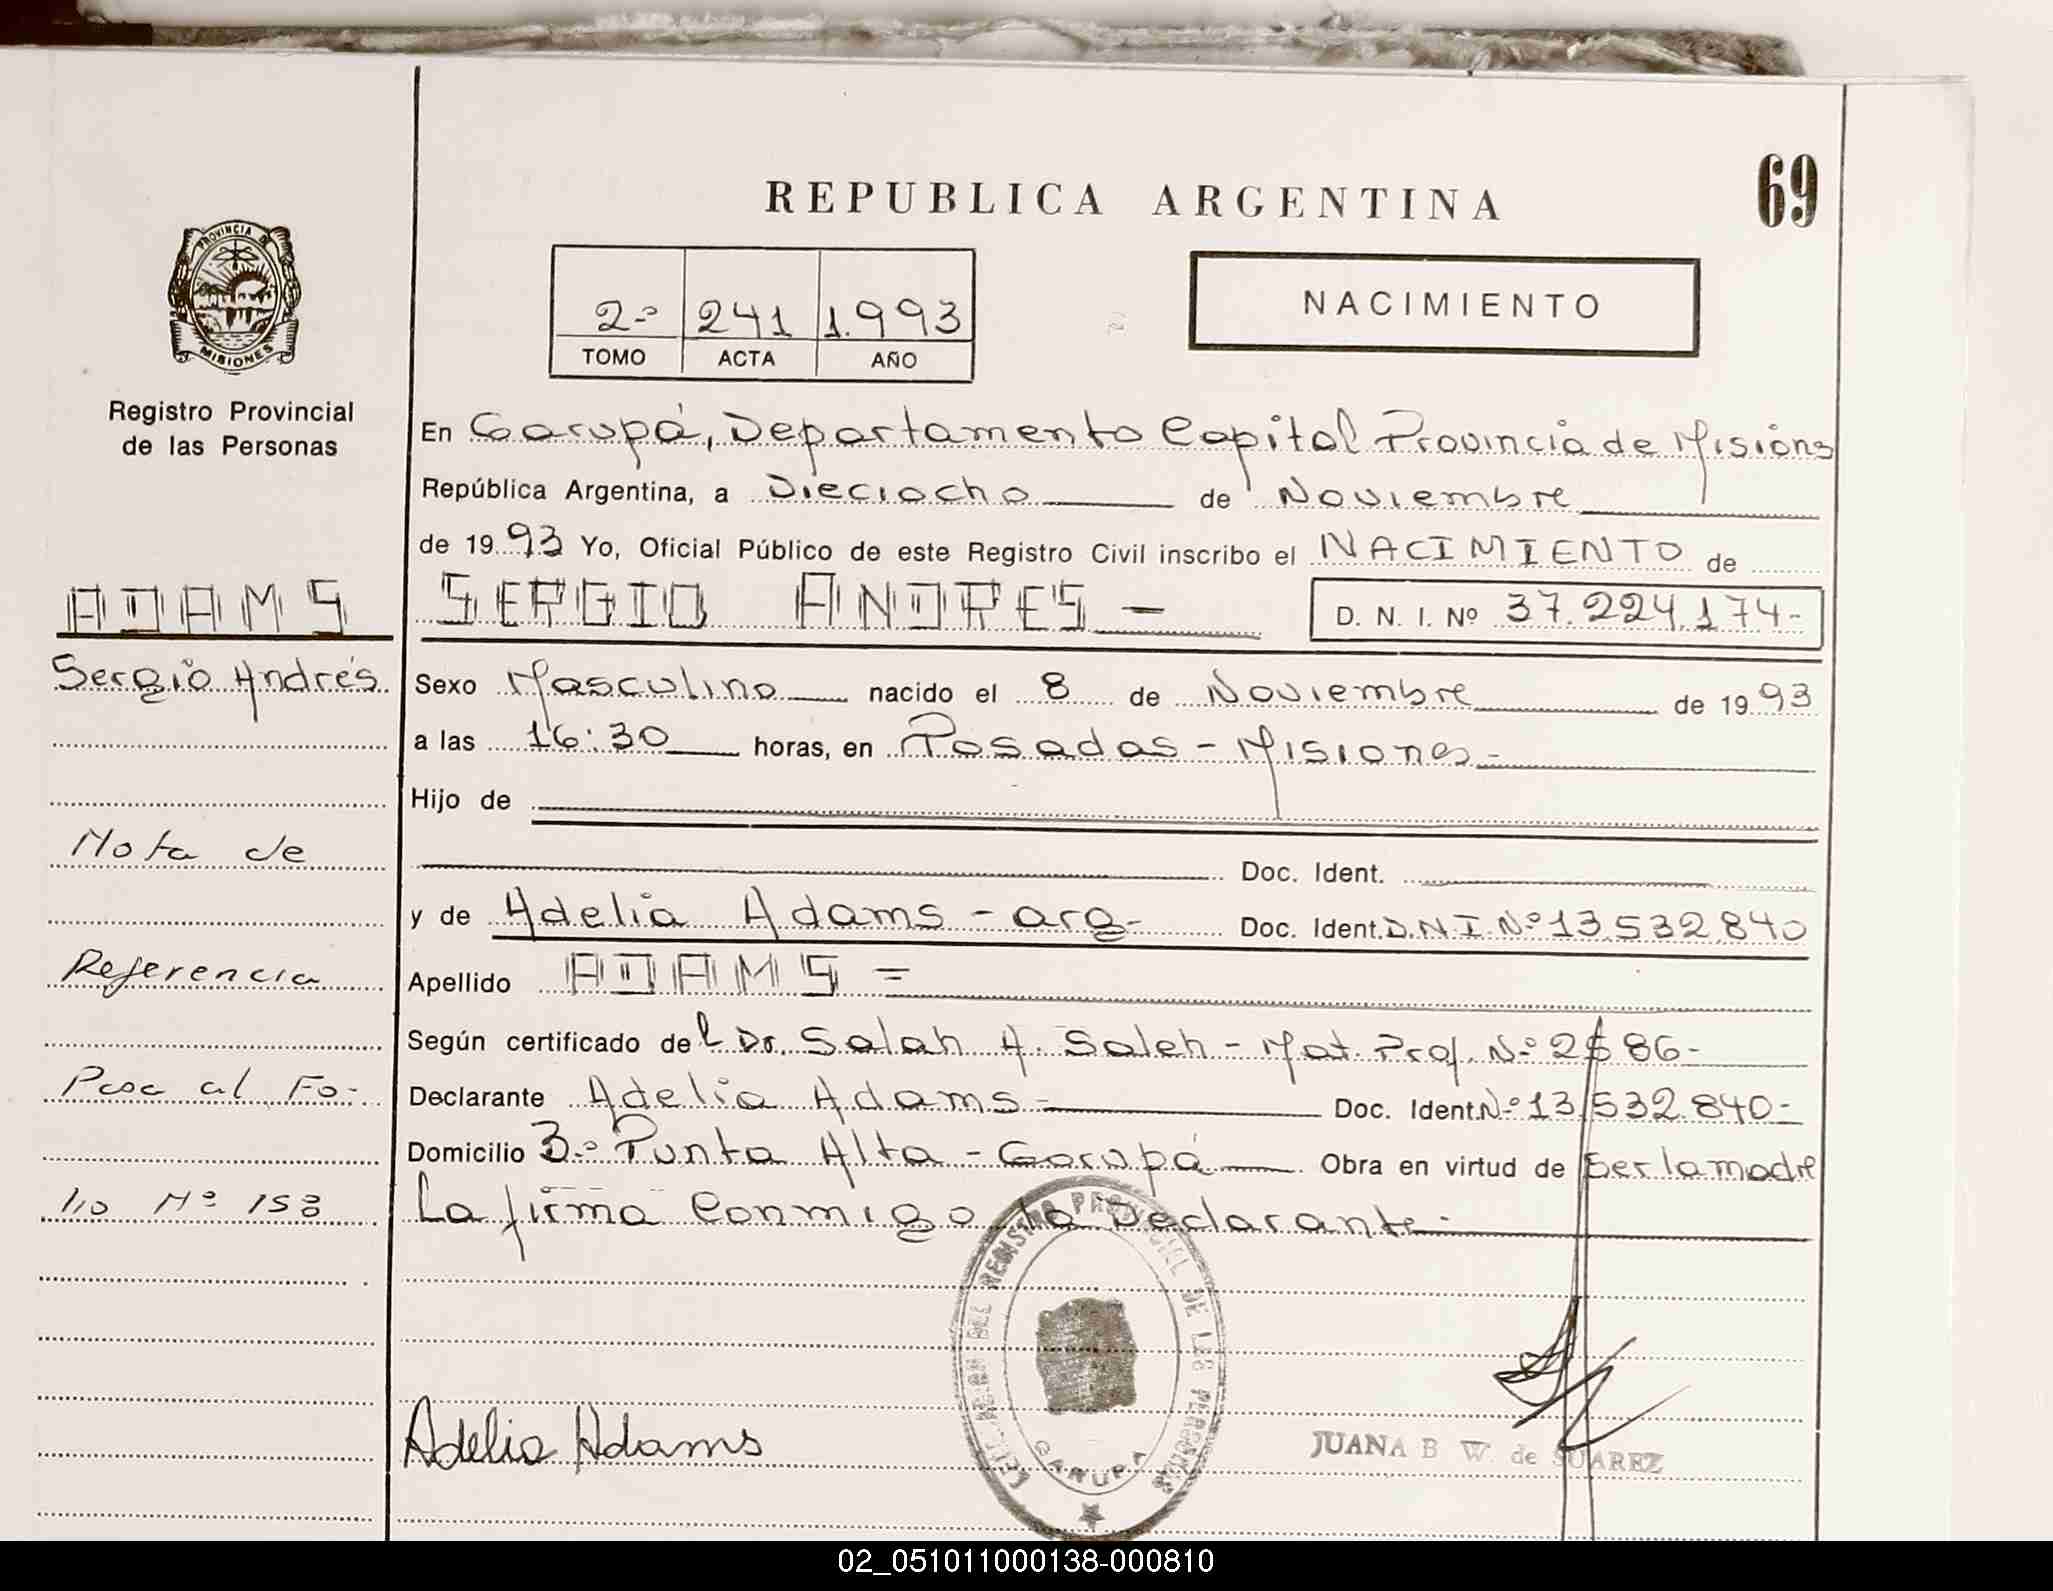 REPUBLICA ARGENTINA
69
PROVINCIA D
MISIONES
Registro Provincial
de las Personas
2º 241 1.993
TOMO ACTA AÑO
NACIMIENTO
En Garupá, Departamento Capital Provincia de Misiones
República Argentina, a Dieciocho de Noviembre
de 1993 Yo, Oficial Público de este Registro Civil inscribo el NACIMIENTO de
ADAMS SERGIO ANDRES -
D. N. I. Nº 37.224.174-
Sergio Andrés
Sexo Masculino nacido el 8 de Noviembre de 1993
a las 16:30 horas, en Posadas - Misiones -
Hijo de
Nota de
Doc. Ident.
y de Adelia Adams - arg- Doc. Ident. D.N.I. Nº 13.532.840
Referencia
Apellido ADAMS =
Según certificado del Dr. Salah A. Saleh - Mat. Prof. Nº 2586-
Pasa al Fo-
Declarante Adelia Adams - Doc. Ident. Nº 13.532.840-
Domicilio Bº Punta Alta - Garupá Obra en virtud de Ser la madre
lio Nº 158
La firma Conmigo la Declarante.
DEL REGISTRO PROVINCIAL DE LAS PERSONAS
GARUPA
Adelia Adams
JUANA B W. de SUAREZ
02_051011000138-000810